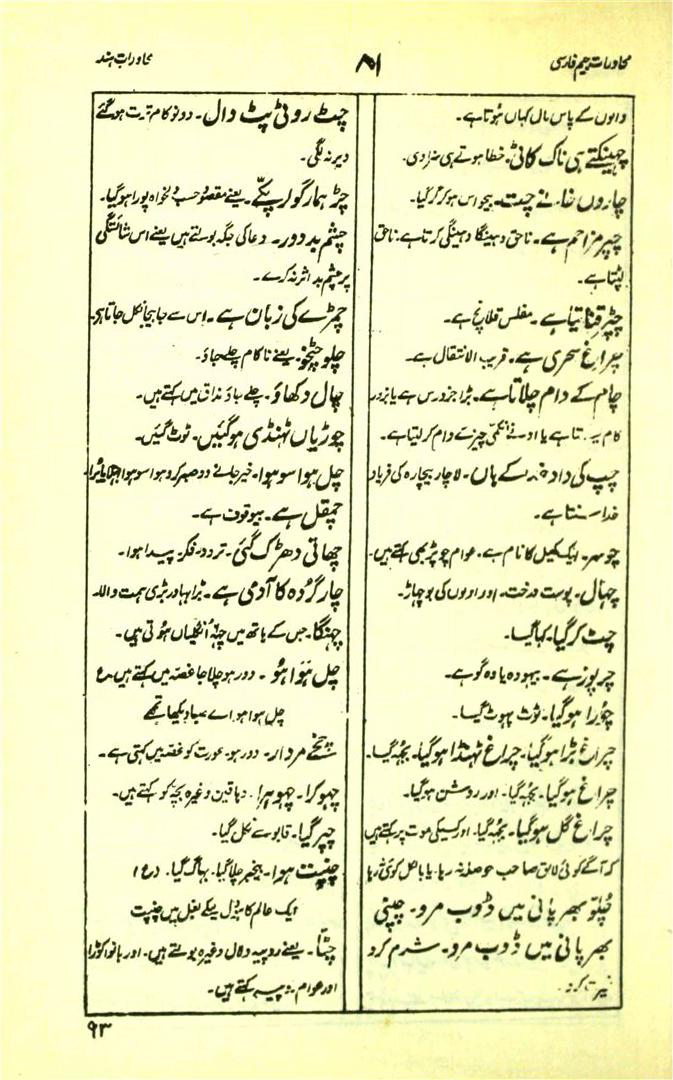 محاورات جیم فارسی
۸۱
محاورات ہند
والوں کے پاس ماں کہاں ہوتا ہے۔
چھینکتے ہی ناک کاٹی۔ خطا ہوتے ہی سزا دی۔
چاروں خانے چت۔ بیحواس ہو کر گر گیا۔
چپر مزاحم ہے۔ ناحق دہینگا دہینگی کرتا ہے۔ ناحق
لپٹتا ہے۔
چپر قناتیا ہے۔ مفلس قلانچ ہے۔
چراغ سحری ہے۔ قریب الانتقال ہے۔
چام کے دام چلاتا ہے۔ بڑا جزورس ہے یا بزور
کام لیتا ہے یا ادنےٰ نکمی چیز سے دام کر لیتا ہے۔
چپ کی داد خدا کے ہاں۔ لاچار بیچارہ کی فریاد
خدا سنتا ہے۔
چوسر۔ ایک کھیل کا نام ہے۔ عوام چوپڑ بھی کہتے ہیں۔
چہال۔ پوست درخت۔ اور اولوں کی بوچہاڑ۔
چٹ کر گیا۔ کہا گیا۔
چرپوز ہے۔ بیہودہ یاوہ گو ہے۔
چورا ہو گیا۔ ٹوٹ پہوٹ گیا۔
چراغ بڑا ہو گیا۔ چراغ ٹہنڈا ہو گیا۔ بجہہ گیا۔
چراغ ہو گیا۔ بجہہ گیا۔ اور روشن ہو گیا۔
چراغ گل ہو گیا۔ بجہہ گیا۔ اور کسیکی موت پر کہتے ہیں
کہ آگے کوئی لائق صاحب حوصلہ نہ رہا۔ یا بالکل کوئی نہ رہا
چلّو بھر پانی میں ڈوب مرو۔ چپنی
بھر پانی میں ڈوب مرو۔ شرم کرو
غیرت کرو۔
چٹ روٹی پٹ دال۔ دونو کام ترت ہو گئے
دیر نہ لگی۔
چڑ ہمار گولر پکّے۔ یعنے مقصود حسب دلخواہ پورا ہو گیا۔
چشم بد دور۔ دعا کی جگہ بولتے ہیں یعنے اس شائستگی
پر چشم بد اثر نہ کرے۔
چمڑے کی زبان ہے۔ اس سے جا بیجا نکل جاتا ہے۔
چلو چٹخو۔ یعنے ناکام چلے جاؤ۔
چال دکھاؤ۔ چلے جاؤ مذاق میں کہتے ہیں۔
چوڑیاں ٹہنڈی ہو گئیں۔ ٹوٹ گئیں۔
چل ہوا سو ہوا۔ خیر جانے دو صبر کرو ہوا سو ہوا اچھا یا برا۔
چمقل ہے۔ بیوقوف ہے۔
چھاتی دھڑک گئی۔ تردد۔ فکر۔ پیدا ہوا۔
چار گردہ کا آدمی ہے۔ بڑا بہادر بڑی ہمت والا۔
چہنگا۔ جس کے ہاتھ میں چہہ انگلیاں ہوتی ہیں۔
چل ہوا ہو۔ دور ہو چلا جا غصہ میں کہتے ہیں۔ ع
چل ہوا ہو اے صبا دیکھا تجھے
چخے مردار۔ دور ہو۔ عورت کو غصہ میں کہتی ہے۔
چہوکرا۔ چہوہرا۔ دہاقین وغیرہ بچہ کو کہتے ہیں۔
چپر گیا۔ قابو سے نکل گیا۔
چنپت ہوا۔ بیخبر چلا گیا۔ بہاگ گیا۔
ایک عالم کا دل لیکے بغل میں چنپت
چٹا۔ یعنے روپیہ دلال وغیرہ بولتے ہیں۔ اور بانو کوڑا
اور عوام روپیہ کہتے ہیں۔
۹۳